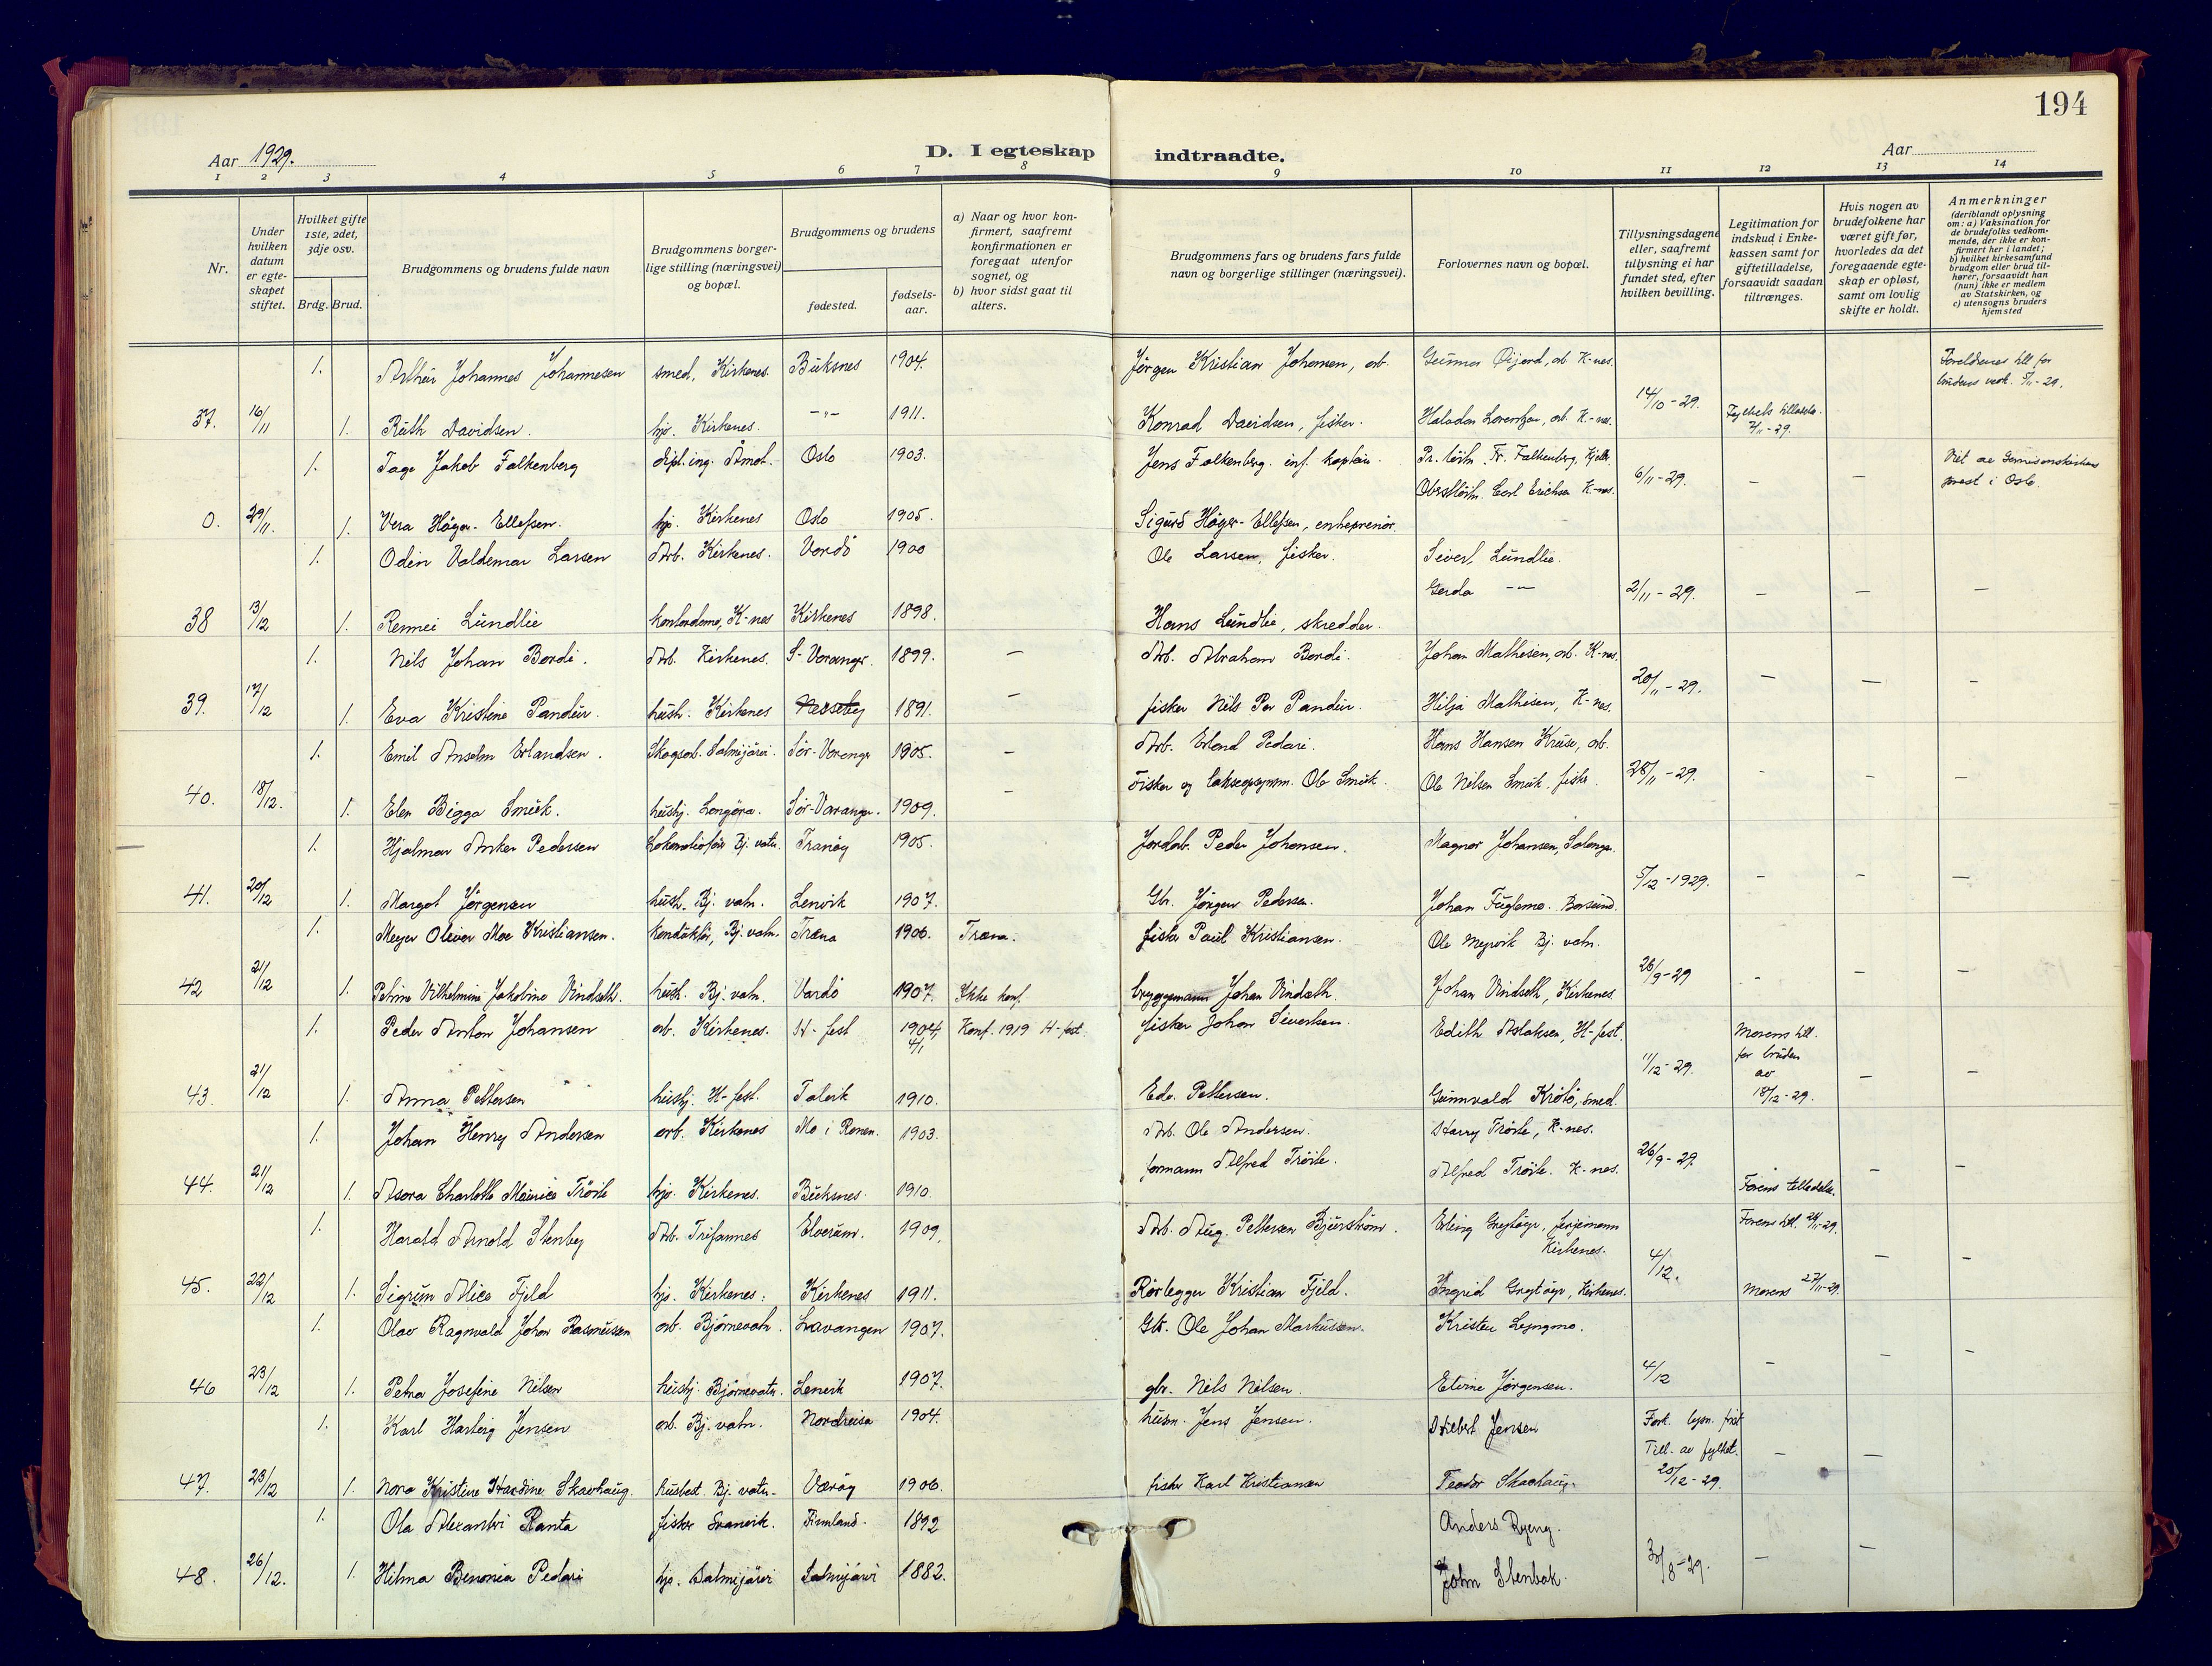 194
Aar 1929.
D. I egteskap indtraadte.
Aar
1 2 3 4 5 6 7 8 9 10 11 12 13 14
Nr.
Under hvilken datum er egteskapet stiftet.
Hvilket gifte 1ste, 2det, 3dje osv.
Brdg. Brud.
Brudgommens og brudens fulde navn
Brudgommens borgerlige stilling (næringsvei) og bopæl.
Brudgommens og brudens
fødested.
fødselsaar.
a) Naar og hvor konfirmert, saafremt konfirmationen er foregaat utenfor sognet, og
b) hvor sidst gaat til alters.
Brudgommens fars og brudens fars fulde navn og borgerlige stillinger (næringsvei).
Forlovernes navn og bopæl.
Tillysningsdagene eller, saafremt tillysning ei har fundet sted, efter hvilken bevilling.
Legitimation for indskud i Enkekassen samt for giftetilladelse, forsaavidt saadan tiltrænges.
Hvis nogen av brudefolkene har været gift før, hvorledes da det foregaaende egteskap er opløst, samt om lovlig skifte er holdt.
Anmerkninger
(deriblandt oplysning om: a) Vaksination for de brudefolks vedkommende, der ikke er konfirmert her i landet; b) hvilket kirkesamfund brudgom eller brud tilhører, forsaavidt han (hun) ikke er medlem av Statskirken, og c) utensogns bruders hjemsted
1. Arthur Johannes Johannesen smed, Kirkenes. Buksnes 1904. Jørgen Kristian Johansen, arb. Gunnar Øijord, arb K-nes.
37. 16/11 1. Ruth Davidsen. hjo. Kirkenes. -"- 1911. Konrad Davidsen, fisker. Halvdan Lorentzen, arb. K-nes. 14/10-29.
1. Tage Jakob Falkenberg dipl.ing. Åmot. Oslo 1903. Jens Falkenberg. inf. kaptein. Pr. løitn. Fr. Falkenberg, Kjeller
Oberstløitn. Carl Erichsen K-nes. 6/11-29. — — Viet av Garnisonskirkens prest i Oslo.
0. 29/11. 1. Vera Høyer-Ellefsen. hjo. Kirkenes Oslo 1905. Sigurd Høyer-Ellefsen, entreprenør.
1. Odin Valdemar Larsen Arb. Kirkenes. Vardö 1900 Ole Larsen, fisker. Sivert Lundlie.
Gerda -"- 2/11-29. — — —
38 13/12 1. Rennei Lundlie kontordame, K-nes Kirkenes 1898. Hans Lundlie, skredder.
1. Nils Johan Bordi. Arb. Kirkenes. S-Varanger. 1899. — Arb. Abraham Bordi. Johan Mathisen, arb. K-nes.
20/11-29. — — —
39. 17/12 1. Eva Kristine Pandur. hush. Kirkenes Nesseby 1891. — fisker Nils Per Pandur. Hilja Mathisen, K-nes.
1. Emil Anselm Erlandsen. Skogsarb. Salmijärvi. Sør-Varanger 1905. — Arb. Erland Pedari. Hans Hansen Kruse, arb.
40. 18/12. 1. Elen Bigga Smuk. hushj. Langöra. Sör-Varanger. 1909. — Fisker og lakseopsynsm. Ole Smuk. Ole Nilsen Smuk. fisker. 28/11-29. - — —
1. Hjalmar Anker Pedersen Lokomotivfør Bj. vatn. Tranöy 1905. Jordarb. Peder Johansen. Magnor Johansen,
5/12-1929. — — —
41. 20/12 1. Margot Jörgensen hush. Bj. vatn. Lenvik 1907. Gbr. Jörgen Pedersen. Johan Fuglemo.
1. Meyer Oliver Moe Kristiansen. konduktør, Bj. vatn. Træna 1906. Træna. fisker Paul Kristiansen. Ole Myrvik Bj. vatn.
26/9-29 - — —
42 21/12 1. Petrine Vilhelmine Jakobine Vindseth. hush. Bj. vatn. Vardö 1907. Ikke konf. bryggemann Johan Vindseth. Johan Vindseth, Kirkenes
1. Peder Anton Johansen arb. Kirkenes. H-fest 1904 4/1 Konf. 1919 H-fest. fisker Johan Sivertsen. Edith Aslaksen, H-fest. Morens till. for bruden av 18/12-29.
11/12-29. — —
43. 21/12 1. Anna Pettersen hushj. H-fest. Talvik 1910. Edv. Pettersen. Gunnvald Krötö, smed.
1. Johan Henry Andersen arb. Kirkenes Mo i Ranen. 1903. Arb. Ole Andersen. Harry Tröite, K-nes.
26/9-29. — —
44. 21/12 1. Asora Charlotte Maurice Tröite hjo. Kirkenes. Buksnes 1910. formann Alfred Tröite. Alfred Tröite. K-nes. Farens tilladelse.
1. Harald Arnold Stenby Arb. Trifannes Elverum. 1909. Arb. Aug. Pettersen Bjurström. Erling Grytöyr, ferjemann Kirkenes. Farens till.
4/12. — —
45. 22/12 1. Sigrun Alice Fjeld hjo. Kirkenes. Kirkenes 1911. Rørlegger Kristian Fjeld. Ingrid Grytöyr, Kirkenes. Morens 27/11-29.
1. Olav Ragnvald Johan Rasmussen arb. Björnevatn. Lavangen 1907. Gbr. Ole Johan Markussen. Kristen Lyngmo.
4/12 — — —
46 23/12 1. Petra Josefine Nilsen hushj. Björnevatn. Lenvik 1907. gbr. Nils Nilsen. Elvine Jörgensen.
1. Karl Hartvig Jensen arb. Bj. vatn. Nordreisa 1904. husm. Jens Jensen. Hilbert Jensen Fork. lysn. frist
Till. av fylket. — —
47. 23/12 1. Nora Kristine Hardine Skavhaug. husbest. Bj. vatn- Værøy 1906. fisker Karl Kristiansen Teodor Skavhaug. 20/12-29.
1. Ola Alexantri Ranta fisker Svanvik. Finnland. 1892 Anders Ryeng.
48. 26/12. 1. Hilma Benonia Pedari hjo. Salmijärvi Salmijärvi 1882. John Stenbak. 30/8-29. — —